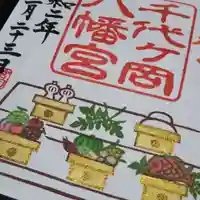 千代ヶ岡
八幡宮
和二年
月二十三日